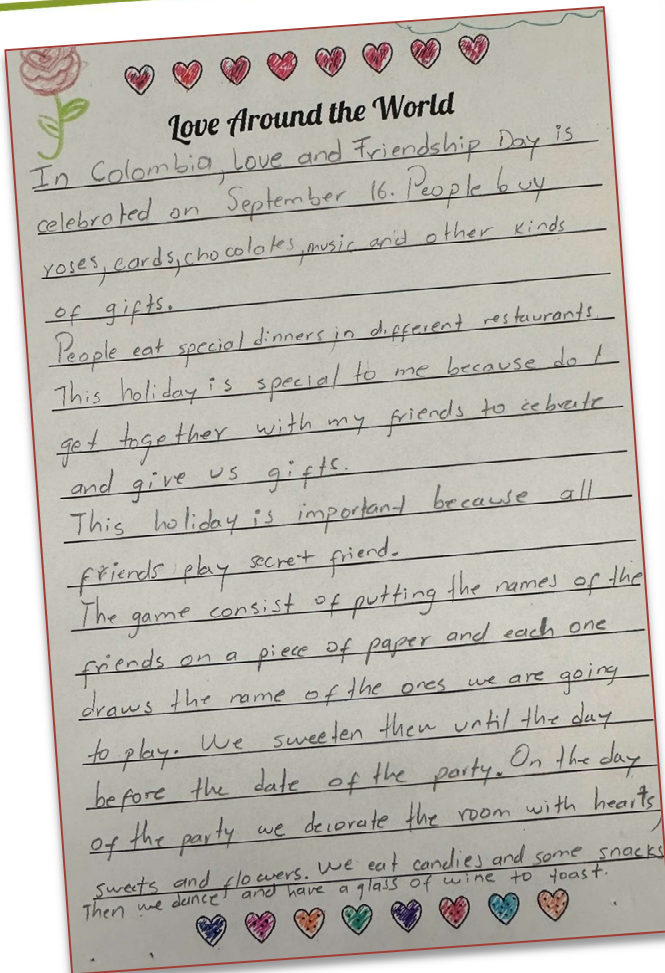 Love Around the World
In Colombia, Love and Friendship Day is
celebrated on September 16. People buy
roses, cards, chocolates, music and other kinds
of gifts.
People eat special dinners in different restaurants
This holiday is special to me because do I
get together with my friends to cebrate
and give us gifts.
This holiday is important because all
friends play secret friend.
The game consist of putting the names of the
friends on a piece of paper and each one
draws the name of the ones we are going
to play. We sweeten then until the day
before the date of the party. On the day
of the party we decorate the room with hearts,
sweets and flowers. We eat candies and some snacks
Then we dance and have a glass of wine to toast.